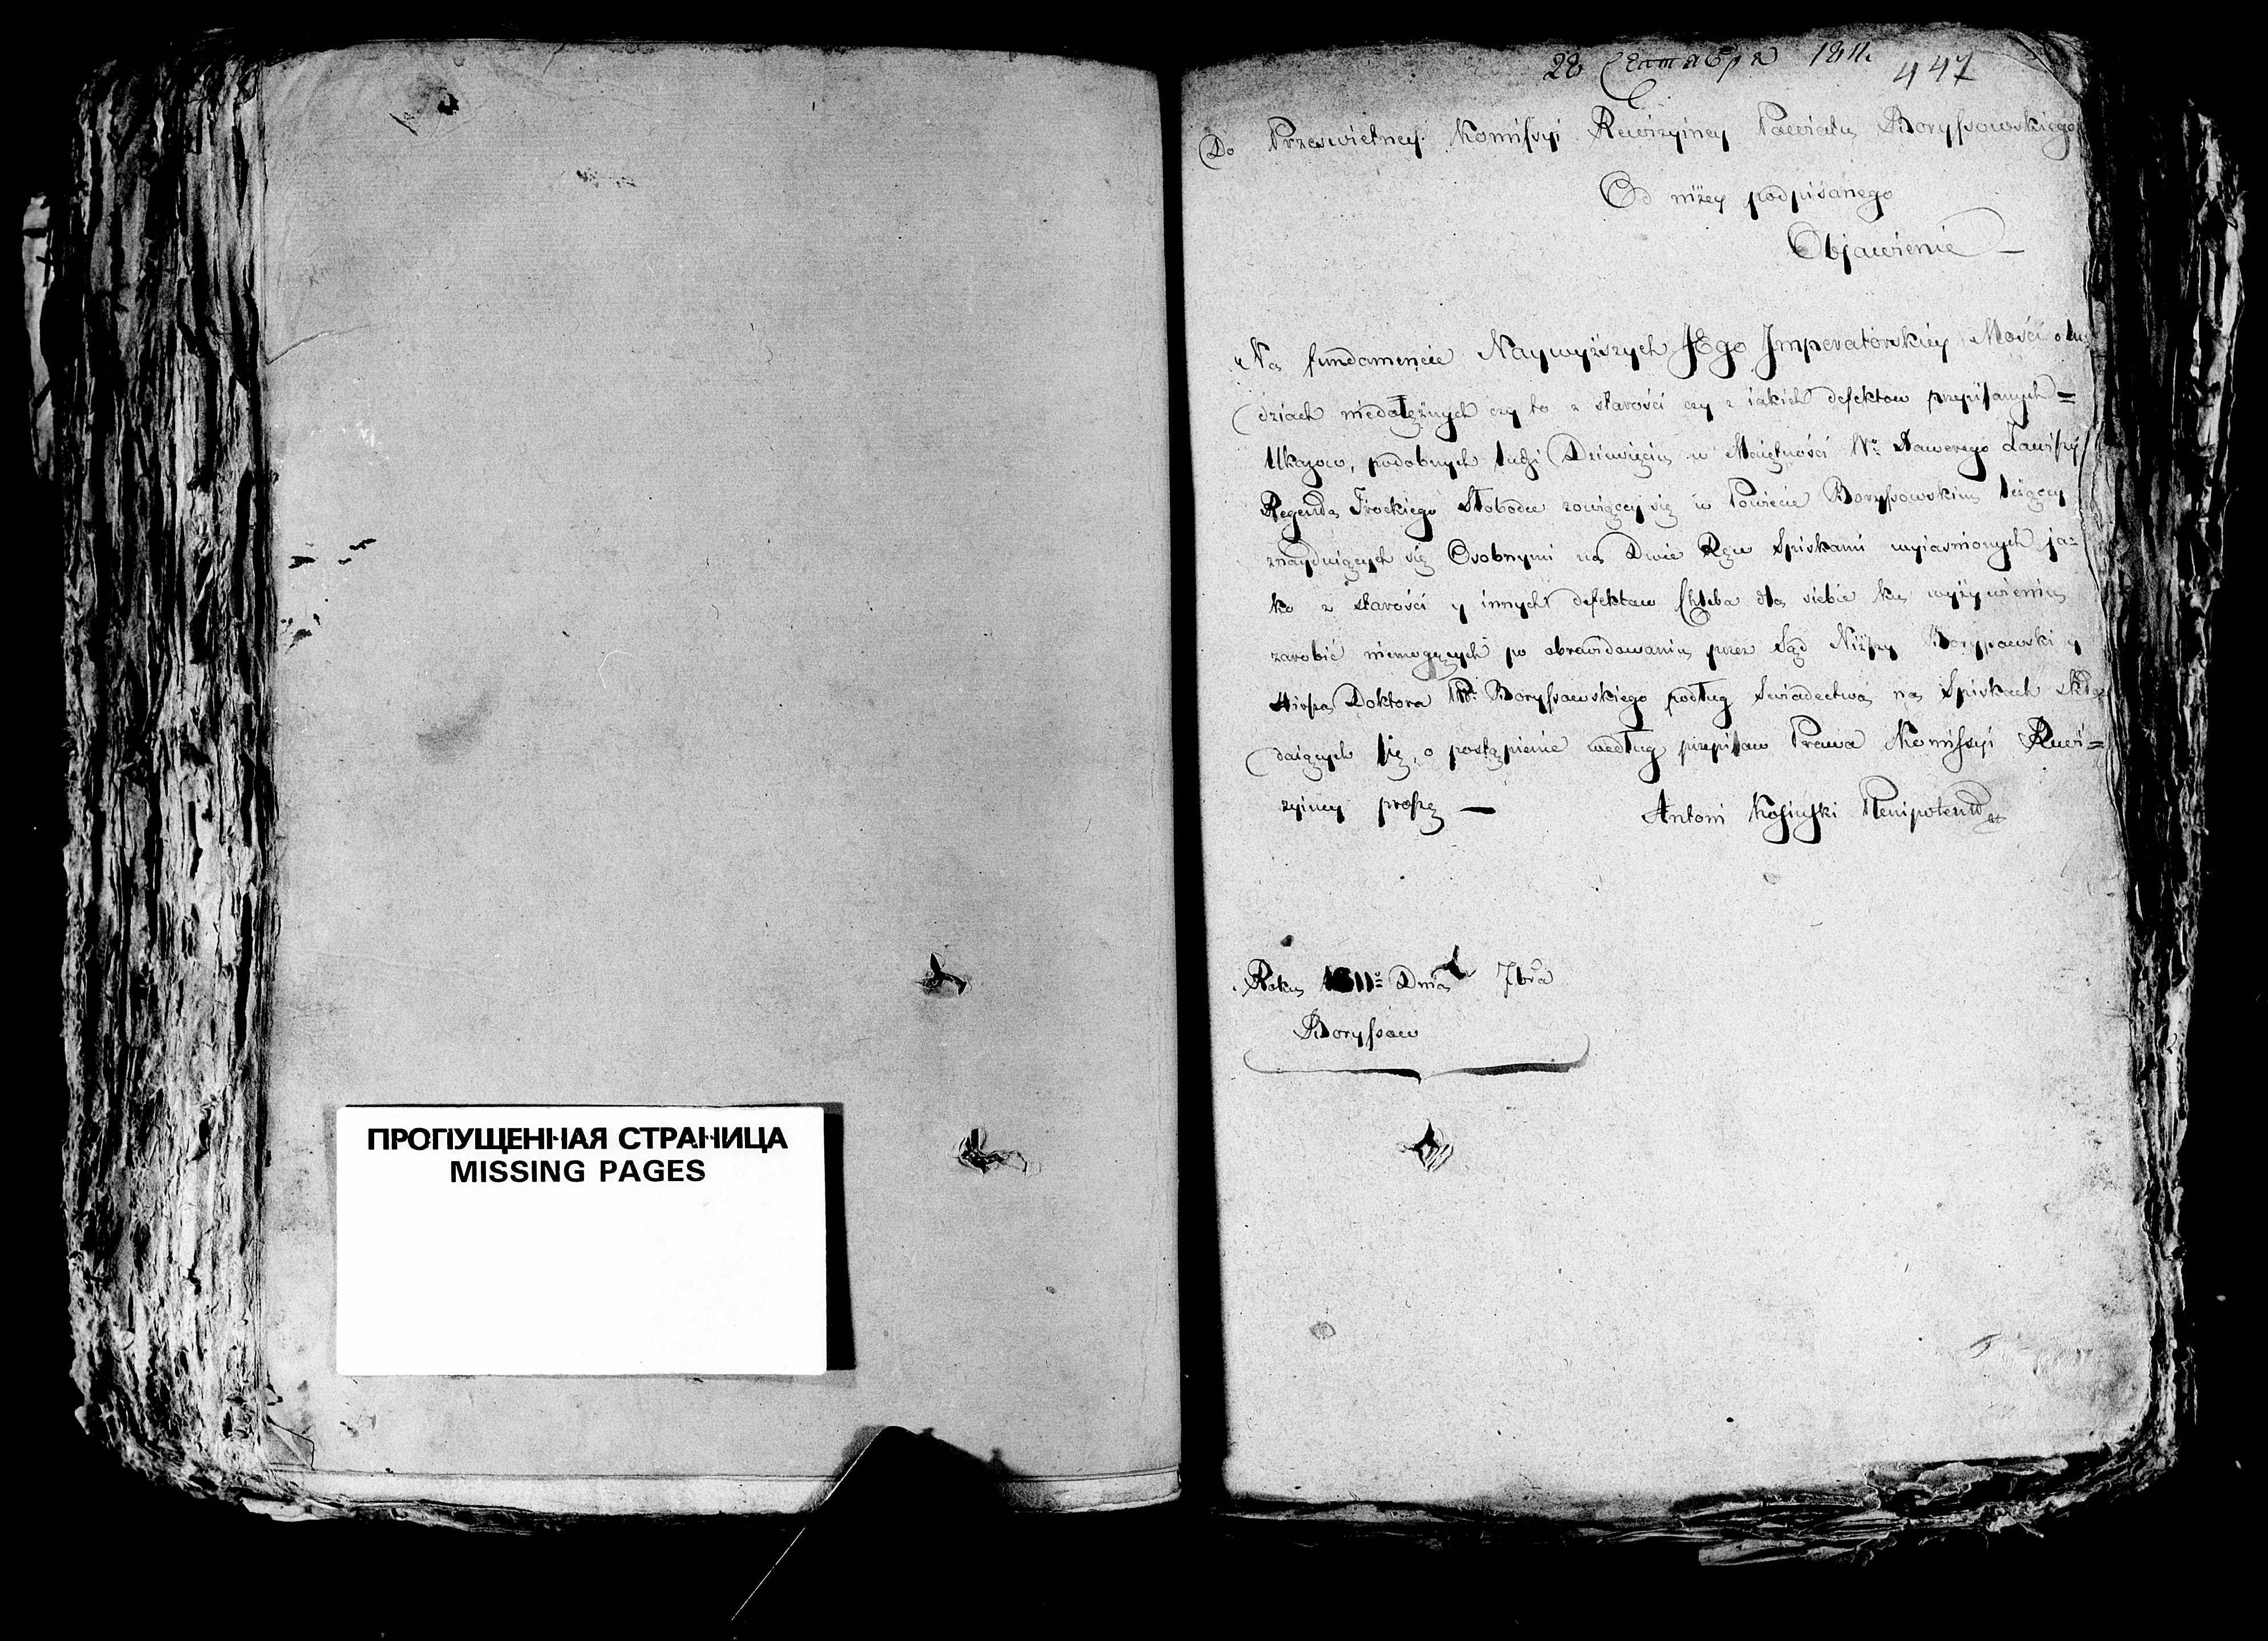 ПРОПУЩЕННАЯ СТРАНИЦА
MISSING PAGES
28 Сентабра 1811. 447
Do Prześwietney Komissyi Rewizyiney Powiatu Boryssowskiego
Od niżey podpisanego
Objawienie
Na fundamencie Naywyższych JEgo Imperatorskiey Mości o lu
dziach niedołężnych czy to z starości czy z iakich defektow przepisanych =
Ukazow, podobnych ludzi Dziewięciu w Maiętności Wo Xawerego Zawiszy
Regenta Trockiego Słobodce zowiącey się w Powiecie Boryssowskim leżącey
znayduiących się Osobnymi na Dwie Ręce Spiskami wyiaśnionych ja=
ko z starości y innych defektow Chleba dla siebie ku wyżywieniu
zarobić niemogących po obrewidowaniu przez Sąd Niższy Boryssowski y
Doktora Pttu Boryssowskiego podług Swiadectwa na Spiskach skła
daiących się, o postąpienie według przepisow Prawa Komissyi Rewi=
zyiney proszę — Antoni Kosiński Plenipotent
Roku 1811o Dnia 7bra
Boryssow